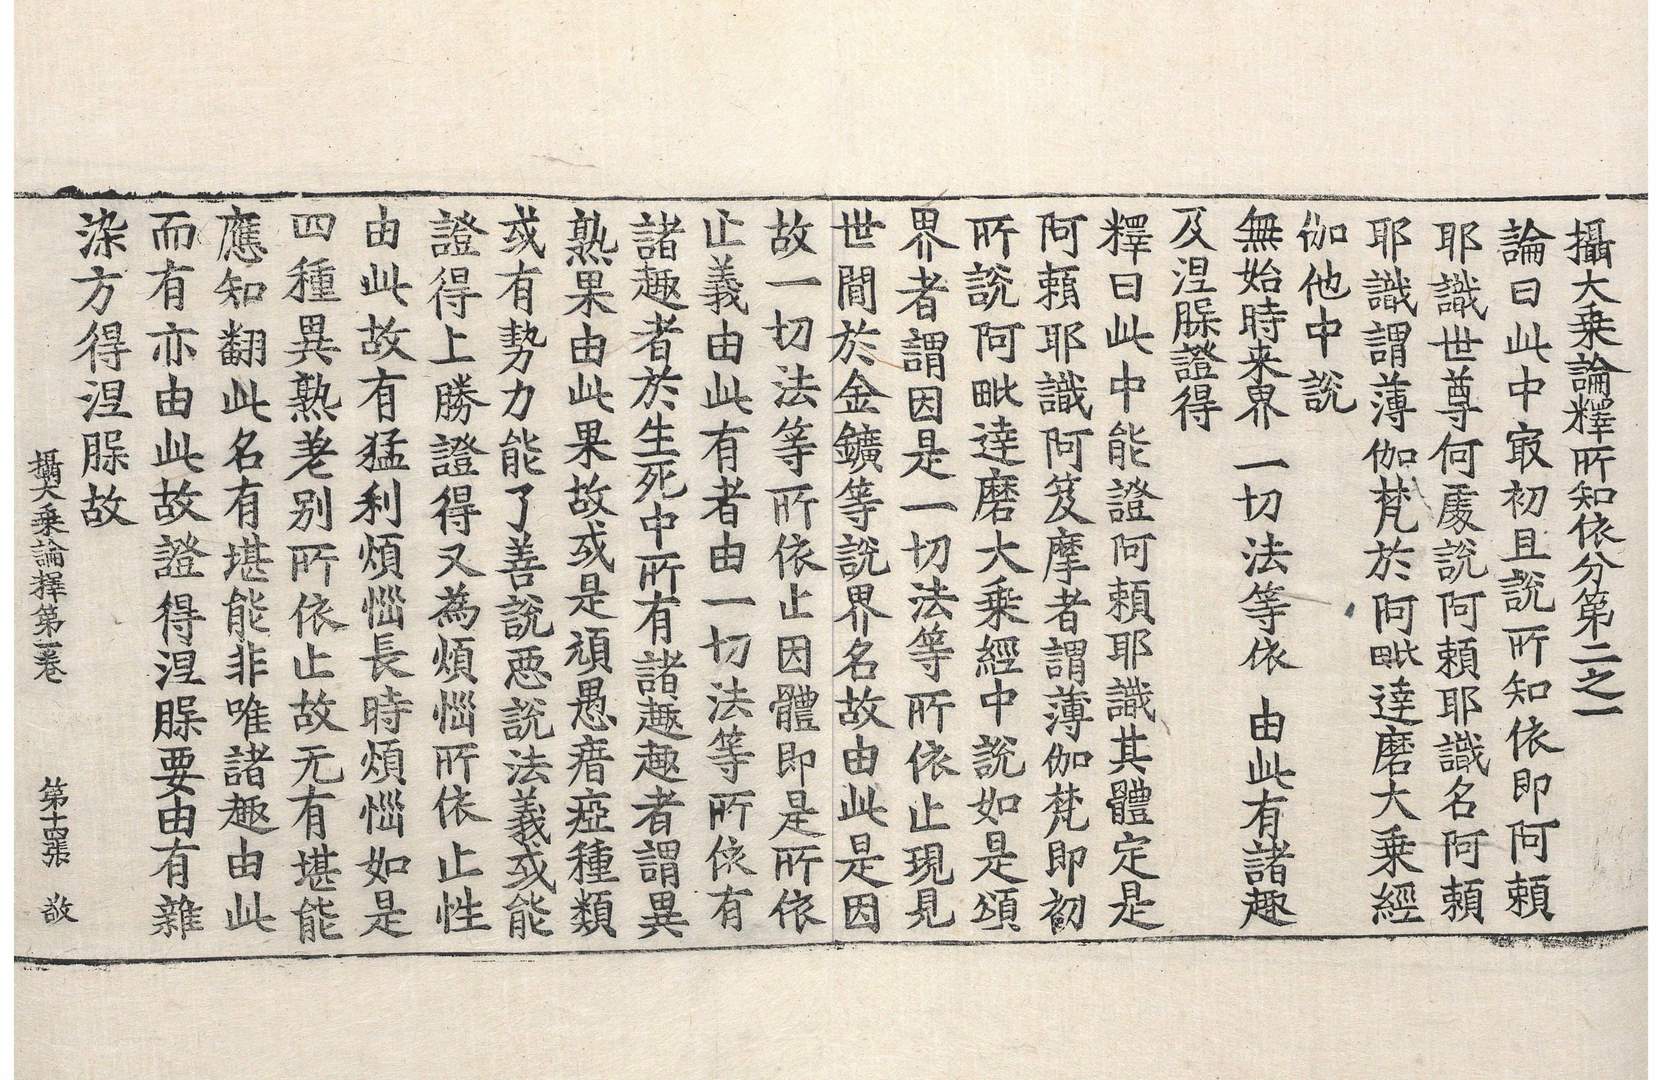 攝大乗論釋所知依分第二之一
論曰此中㝡初且說所知依即阿頼
耶識世尊何䖏說阿頼耶識名阿頼
耶識謂薄伽梵於阿毗達磨大乗經
伽他中說
無始時来界 一切法等依 由此有諸趣
及涅槃證得
釋曰此中能證阿頼耶識其體定是
阿頼耶識阿笈摩者謂薄伽梵即初
所說阿毗達磨大乗經中說如是頌
界者謂因是一切法等所依止現見
世間於金鑛等說界名故由此是因
故一切法等所依止因體即是所依
止義由此有者由一切法等所依有
諸趣者於生死中所有諸趣趣者謂異
熟果由此果故或是頑愚瘖瘂種類
或有勢力能了善說惡說法義或能
證得上勝證得又為煩惱所依止性
由此故有猛利煩惱長時煩惱如是
四種異熟差别所依止故无有堪能
應知翻此名有堪能非唯諸趣由此
而有亦由此故證得涅槃要由有雜
染方得涅槃故
攝大乗論釋第一卷 第十四張 敬